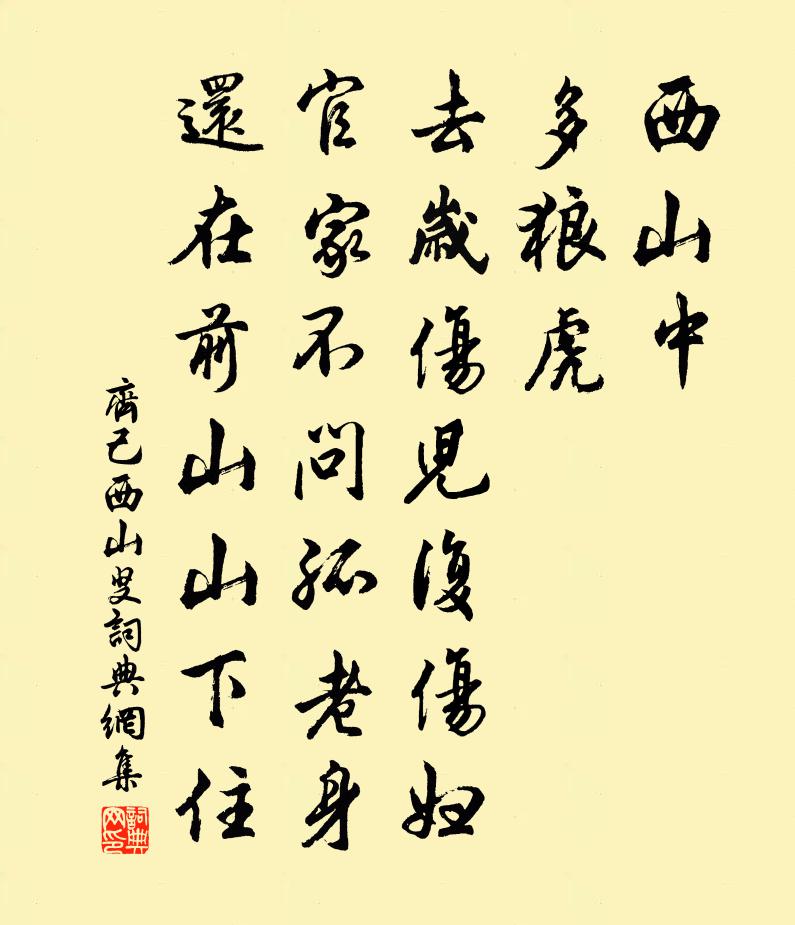 西山中
多狼虎
去歲傷兒復傷婦
官家不問孤老身
還在前山山下住
齊己西山叟詞典網集
詞典网印